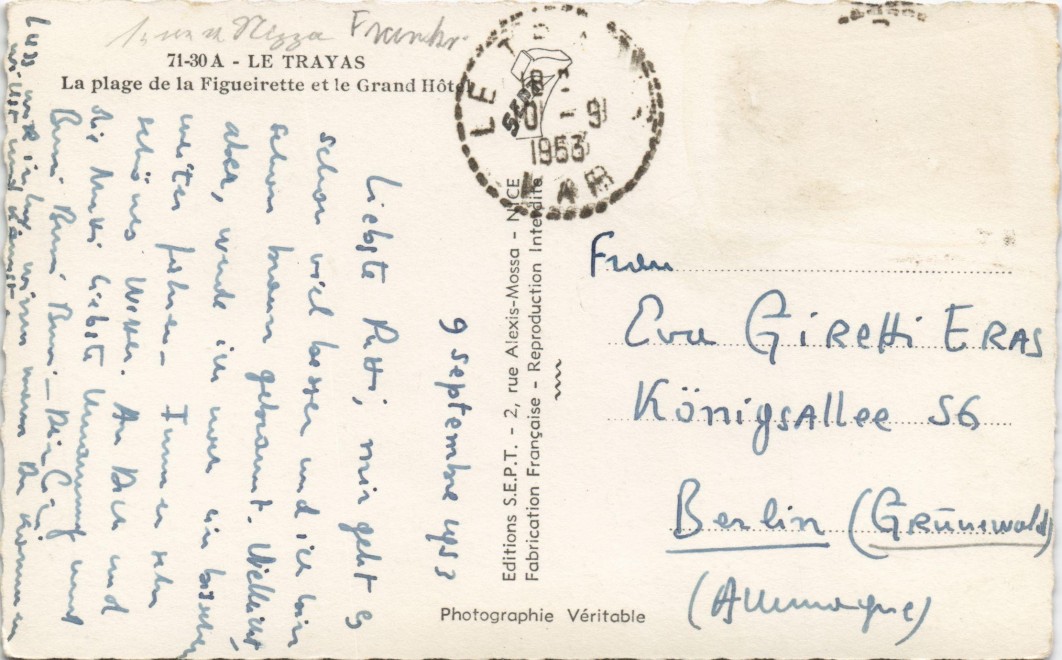 Nizza
71-30 A - LE TRAYAS
La plage de la Figueirette et le Grand Hôte
LE TRAYAS
1953
VAR
9 Septembre 1953
Liebste Putti, mir geht es
schon viel besser und ich bin
schon braun gebrannt. Vielleicht,
aber, werde ich noch ein bisschen
weiter fahren - Immer sehr
schönes Wetter. An Dich und
die Mutti liebste Umarmung und
Bussi Bussi Bussi - Dein
Lass mich wissen wenn Du
Editions S.E.P.T. - 2, rue Alexis-Mossa - NICE
Fabrication Française - Reproduction Interdite
Photographie Véritable
Frau
Eva Giretti ERAS
Königsallee 56
Berlin (Grünewald)
(Allemagne)